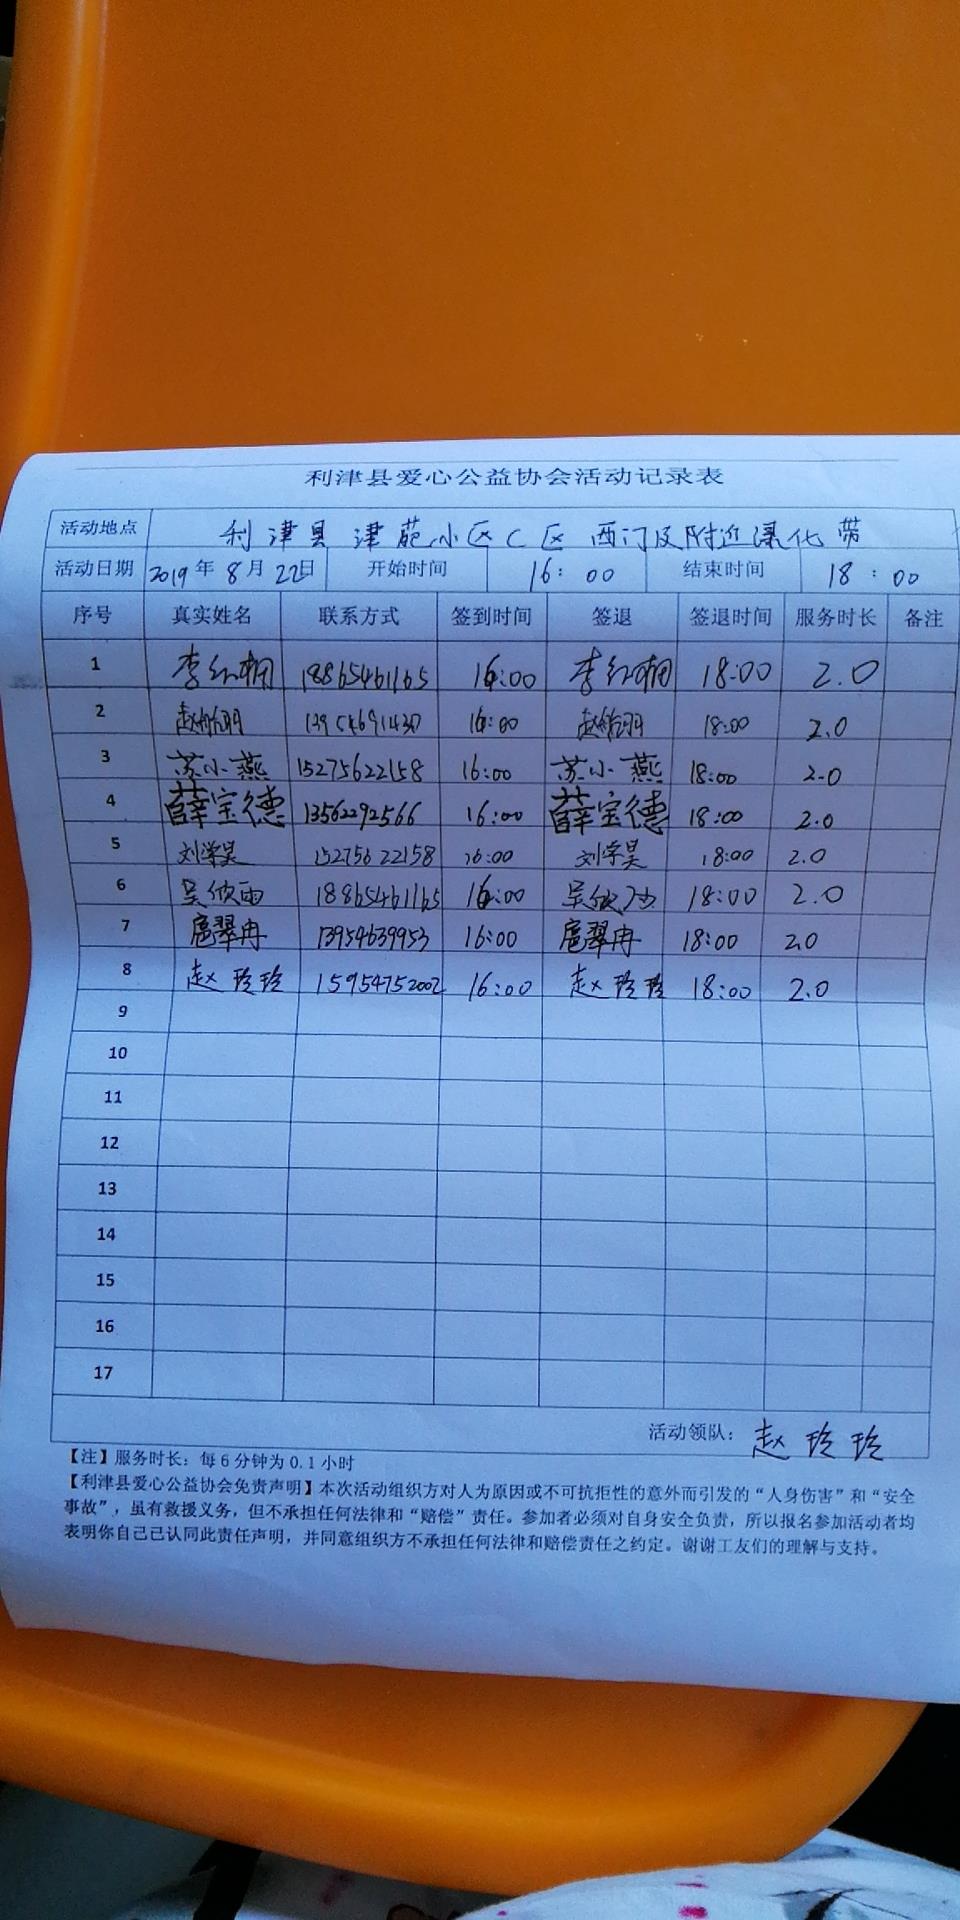 利津县爱心公益协会活动记录表
活动地点 利津县津苑小区C区西门及附近绿化带
活动日期 2019年8月22日 开始时间 16:00 结束时间 18:00
序号 真实姓名 联系方式 签到时间 签退 签退时间 服务时长 备注
1 李红 18865461165 16:00 李红 18:00 2.0
2 赵 16:00 赵 18:00 2.0
3 苏小燕 15275622158 16:00 苏小燕 18:00 2.0
4 薛宝德 13562292566 16:00 薛宝德 18:00 2.0
5 刘学昊 15275622158 16:00 刘学昊 18:00 2.0
6 吴欣雨 18865461165 16:00 吴欣雨 18:00 2.0
7 扈翠冉 13954639953 16:00 扈翠冉 18:00 2.0
8 赵玲玲 15954752002 16:00 赵玲玲 18:00 2.0
9
10
11
12
13
14
15
16
17
活动领队：赵玲玲
【注】服务时长：每6分钟为0.1小时
【利津县爱心公益协会免责声明】本次活动组织方对人为原因或不可抗拒性的意外而引发的“人身伤害”和“安全
事故”，虽有救援义务，但不承担任何法律和“赔偿”责任。参加者必须对自身安全负责，所以报名参加活动者均
表明你自己已认同此责任声明，并同意组织方不承担任何法律和赔偿责任之约定。谢谢工友们的理解与支持。